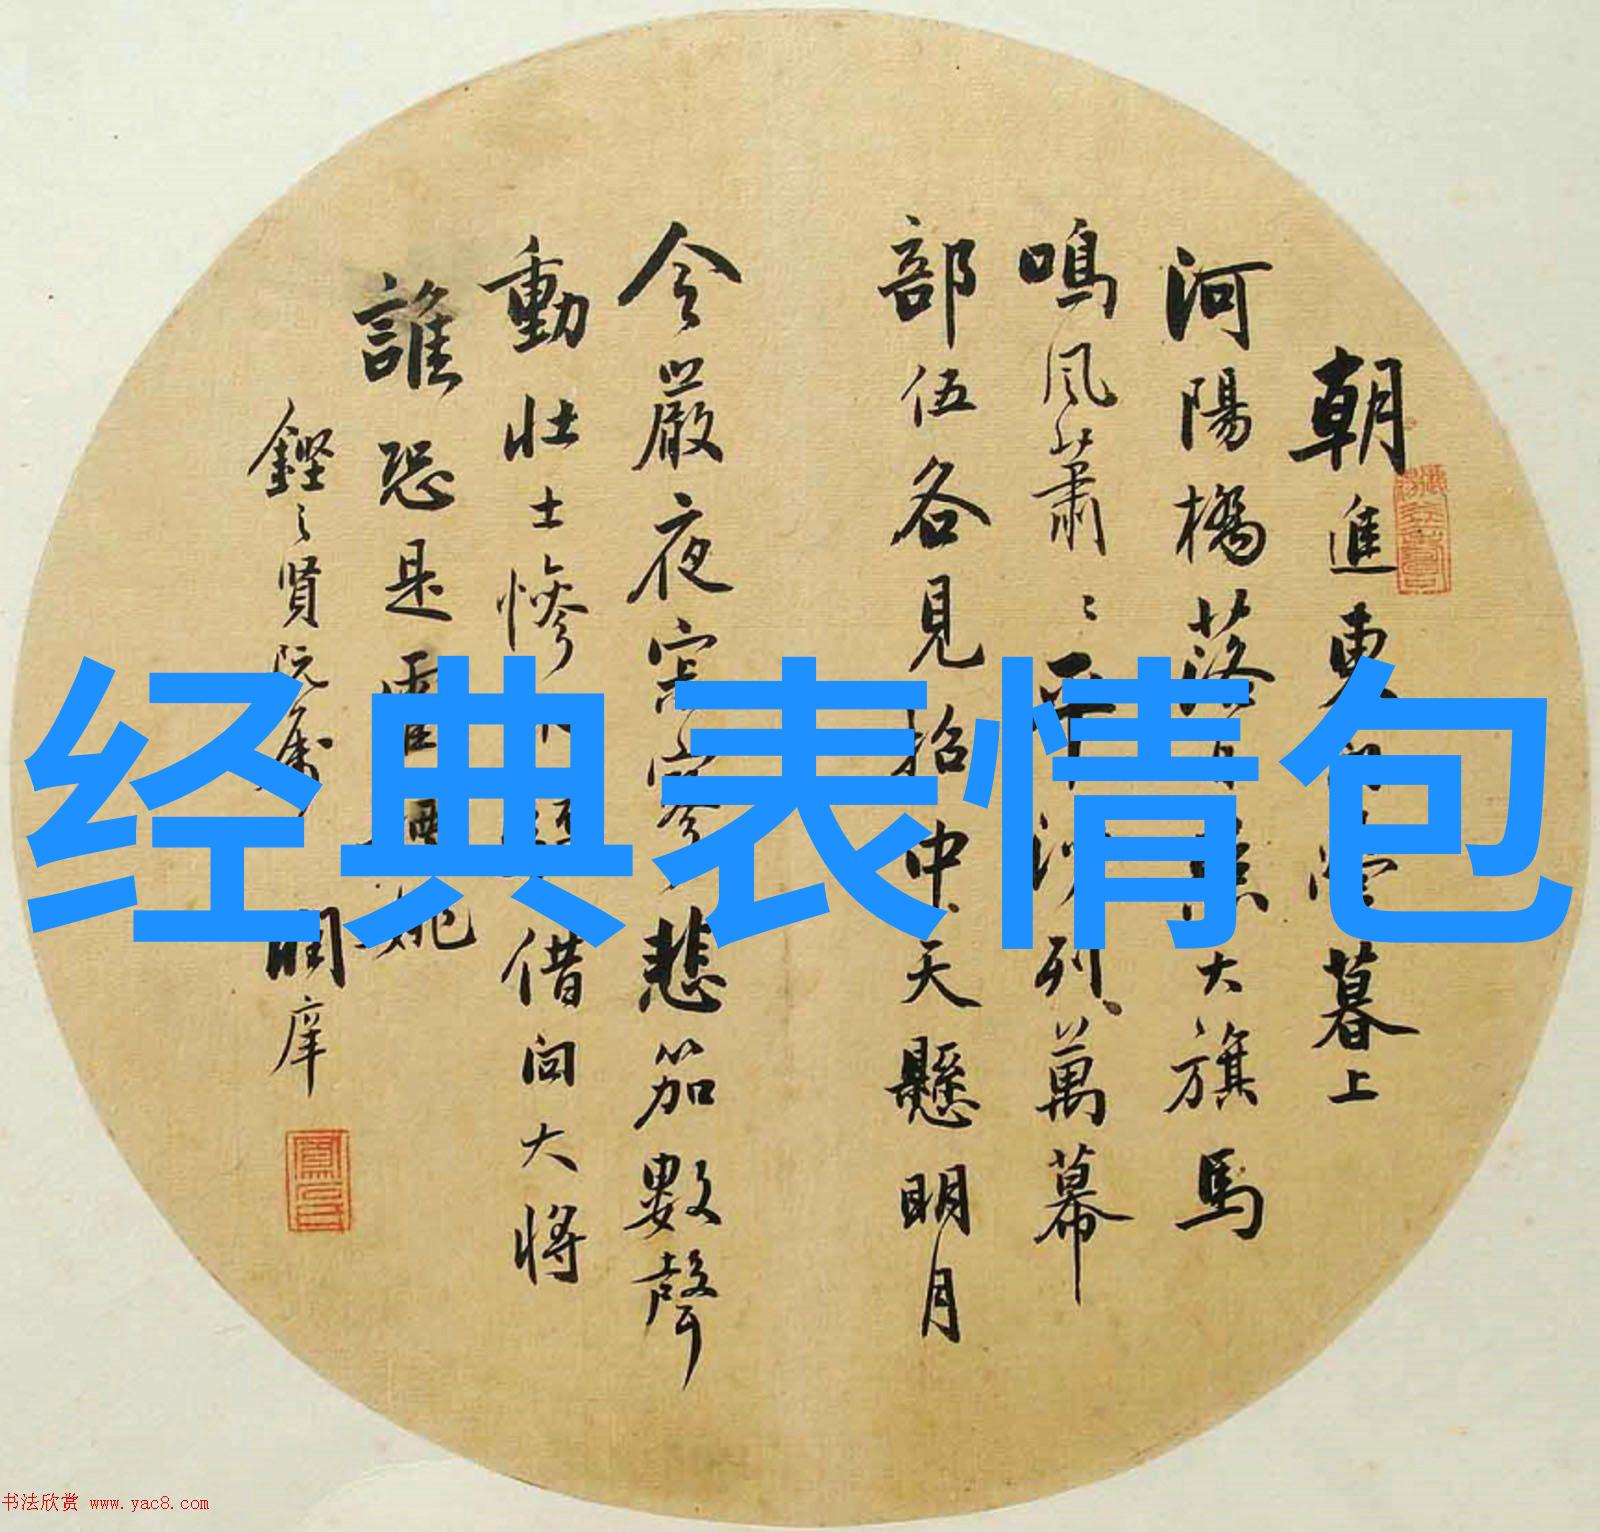 朝進東門營暮上
河陽橋落日照大旗馬
鳴風蕭〻平沙列萬幕
部伍各見招中天懸明月
令嚴夜寂寥悲笳數聲
動壯士慘不驕借問大將
誰恐是霍嫖姚
鏗之賢阮屬 潤庠
经典表情包
书法欣赏 www.yac8.com